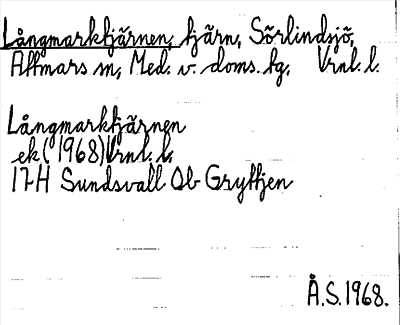 Långmarktjärnen, tjärn, Sörlindsjö,
Attmars sn, Med. v. doms. tg. Vrnl. l.
Långmarktjärnen
ek (1968) Vrnl. l.
17H Sundsvall Ob Gryttjen
Å.S. 1968.